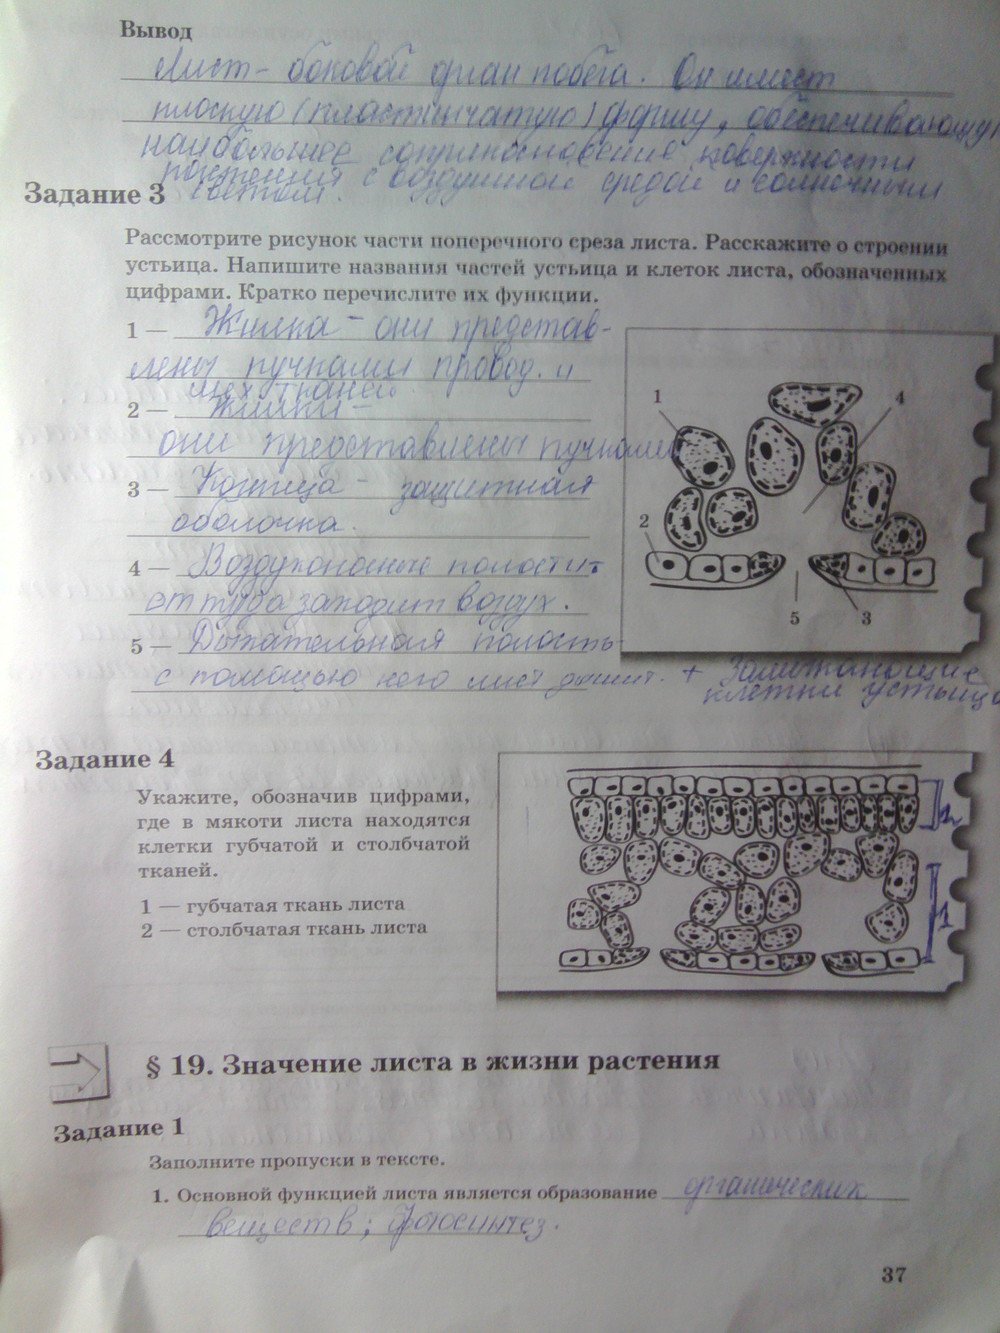 Вывод
Лист - боковой орган побега. Он имеет
плоскую (пластинчатую) форму, обеспечивающую
наибольшее соприкосновение поверхности
растения с воздушной средой и солнечным
светом.
Задание 3
Рассмотрите рисунок части поперечного среза листа. Расскажите о строении
устьица. Напишите названия частей устьица и клеток листа, обозначенных
цифрами. Кратко перечислите их функции.
1 — Жилка - они представ-
лены пучками провод. и
мех. тканей.
2 — Жилки -
они представлены пучками
3 — Кожица - защитная
оболочка.
4 — Воздухоносные полости -
оттуда заходит воздух.
5 — Дыхательная полость -
с помощью кого лист дышит. + Замыкающие
клетки устьица
1
4
2
5
3
Задание 4
Укажите, обозначив цифрами,
где в мякоти листа находятся
клетки губчатой и столбчатой
тканей.
1 — губчатая ткань листа
2 — столбчатая ткань листа
2
1
§ 19. Значение листа в жизни растения
Задание 1
Заполните пропуски в тексте.
1. Основной функцией листа является образование органических
веществ; фотосинтез.
37